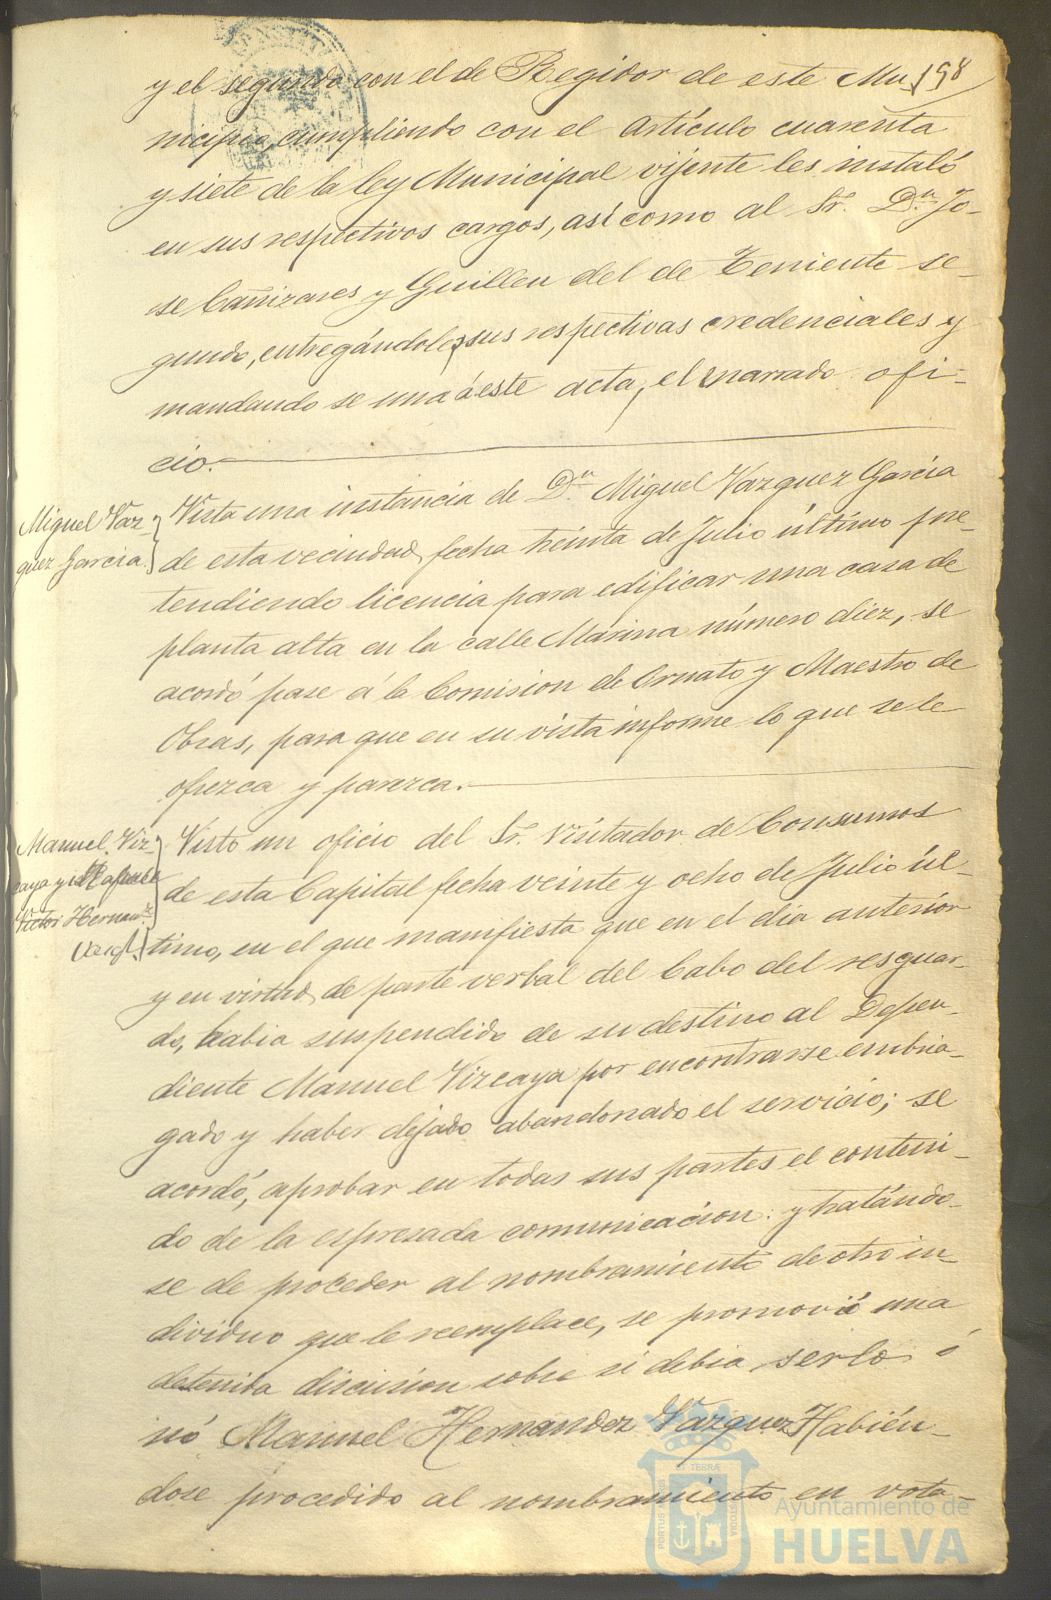 198
y el segundo con el de Regidor de este Mu-
nicipio, cumpliendo con el Artículo cuarenta
y siete de la ley Municipal vijente les instaló
en sus respectivos cargos, así como al Sr. Dn. Jo-
se Cañizares y Guillen del de Teniente se-
gundo, entregándoles sus respectivas credenciales y
mandando se una á este acta, el narrado ofi-
cio.
Miguel Vaz-
quez Garcia.
Vista una instancia de Dn. Miguel Vazquez Garcia
de esta vecindad, fecha treinta de Julio último pre-
tendiendo licencia para edificar una casa de
planta alta en la calle Marina número diez, se
acordó pase á la Comision de Ornato y Maestro de
Obras, para que en su vista informe lo que se le
ofrezca y parezca.
Manuel Viz-
caya y
Victor Hernan
Visto un oficio del Sr. Visitador de Consumos
de esta Capital fecha veinte y ocho de Julio úl-
timo, en el que manifiesta que en el dia anterior
y en virtud de parte verbal del Cabo del resguar-
do, habia suspendido de su destino al Depen-
diente Manuel Vizcaya por encontrarse embria-
gado y haber dejado abandonado el servicio; se
acordó, aprobar en todas sus partes el conteni-
do de la espresada comunicacion: y tratándo-
se de proceder al nombramiento de otro in-
dividuo que le reemplace, se promovió una
detenida discusion sobre si debia serlo ó
nó Manuel Hernandez Vazquez Habién-
dose procedido al nombramiento en vota-
Ayuntamiento de
HUELVA